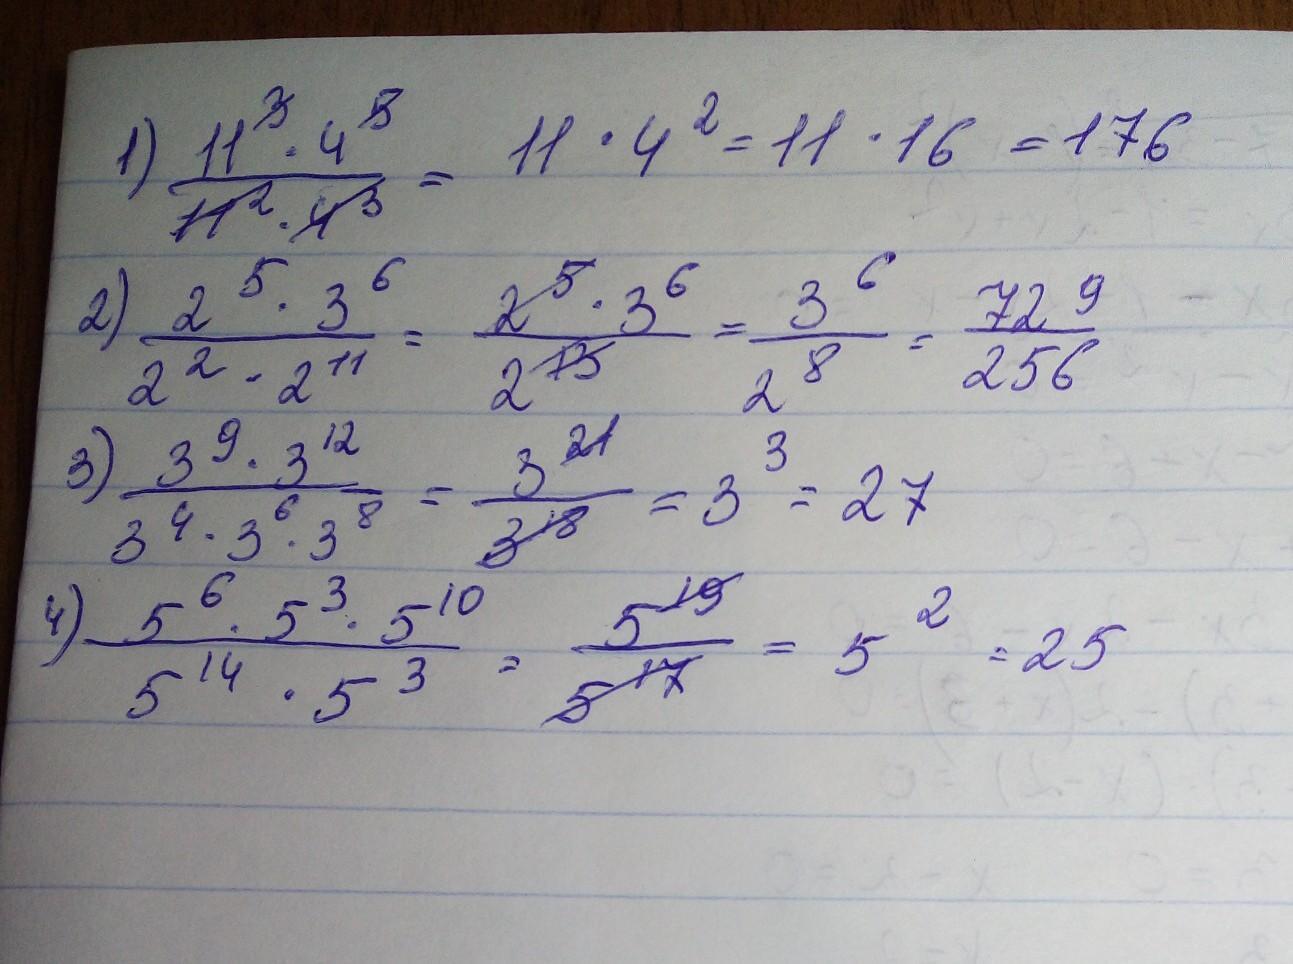 1) 11³ · 4⁵ / 11² · 4³ = 11 · 4² = 11 · 16 = 176
2) 2⁵ · 3⁶ / 2² · 2¹¹ = 2⁵ · 3⁶ / 2¹³ = 3⁶ / 2⁸ = 729 / 256
3) 3⁹ · 3¹² / 3⁴ · 3⁶ · 3⁸ = 3²¹ / 3¹⁸ = 3³ = 27
4) 5⁶ · 5³ · 5¹⁰ / 5¹⁴ · 5³ = 5¹⁹ / 5¹⁷ = 5² = 25